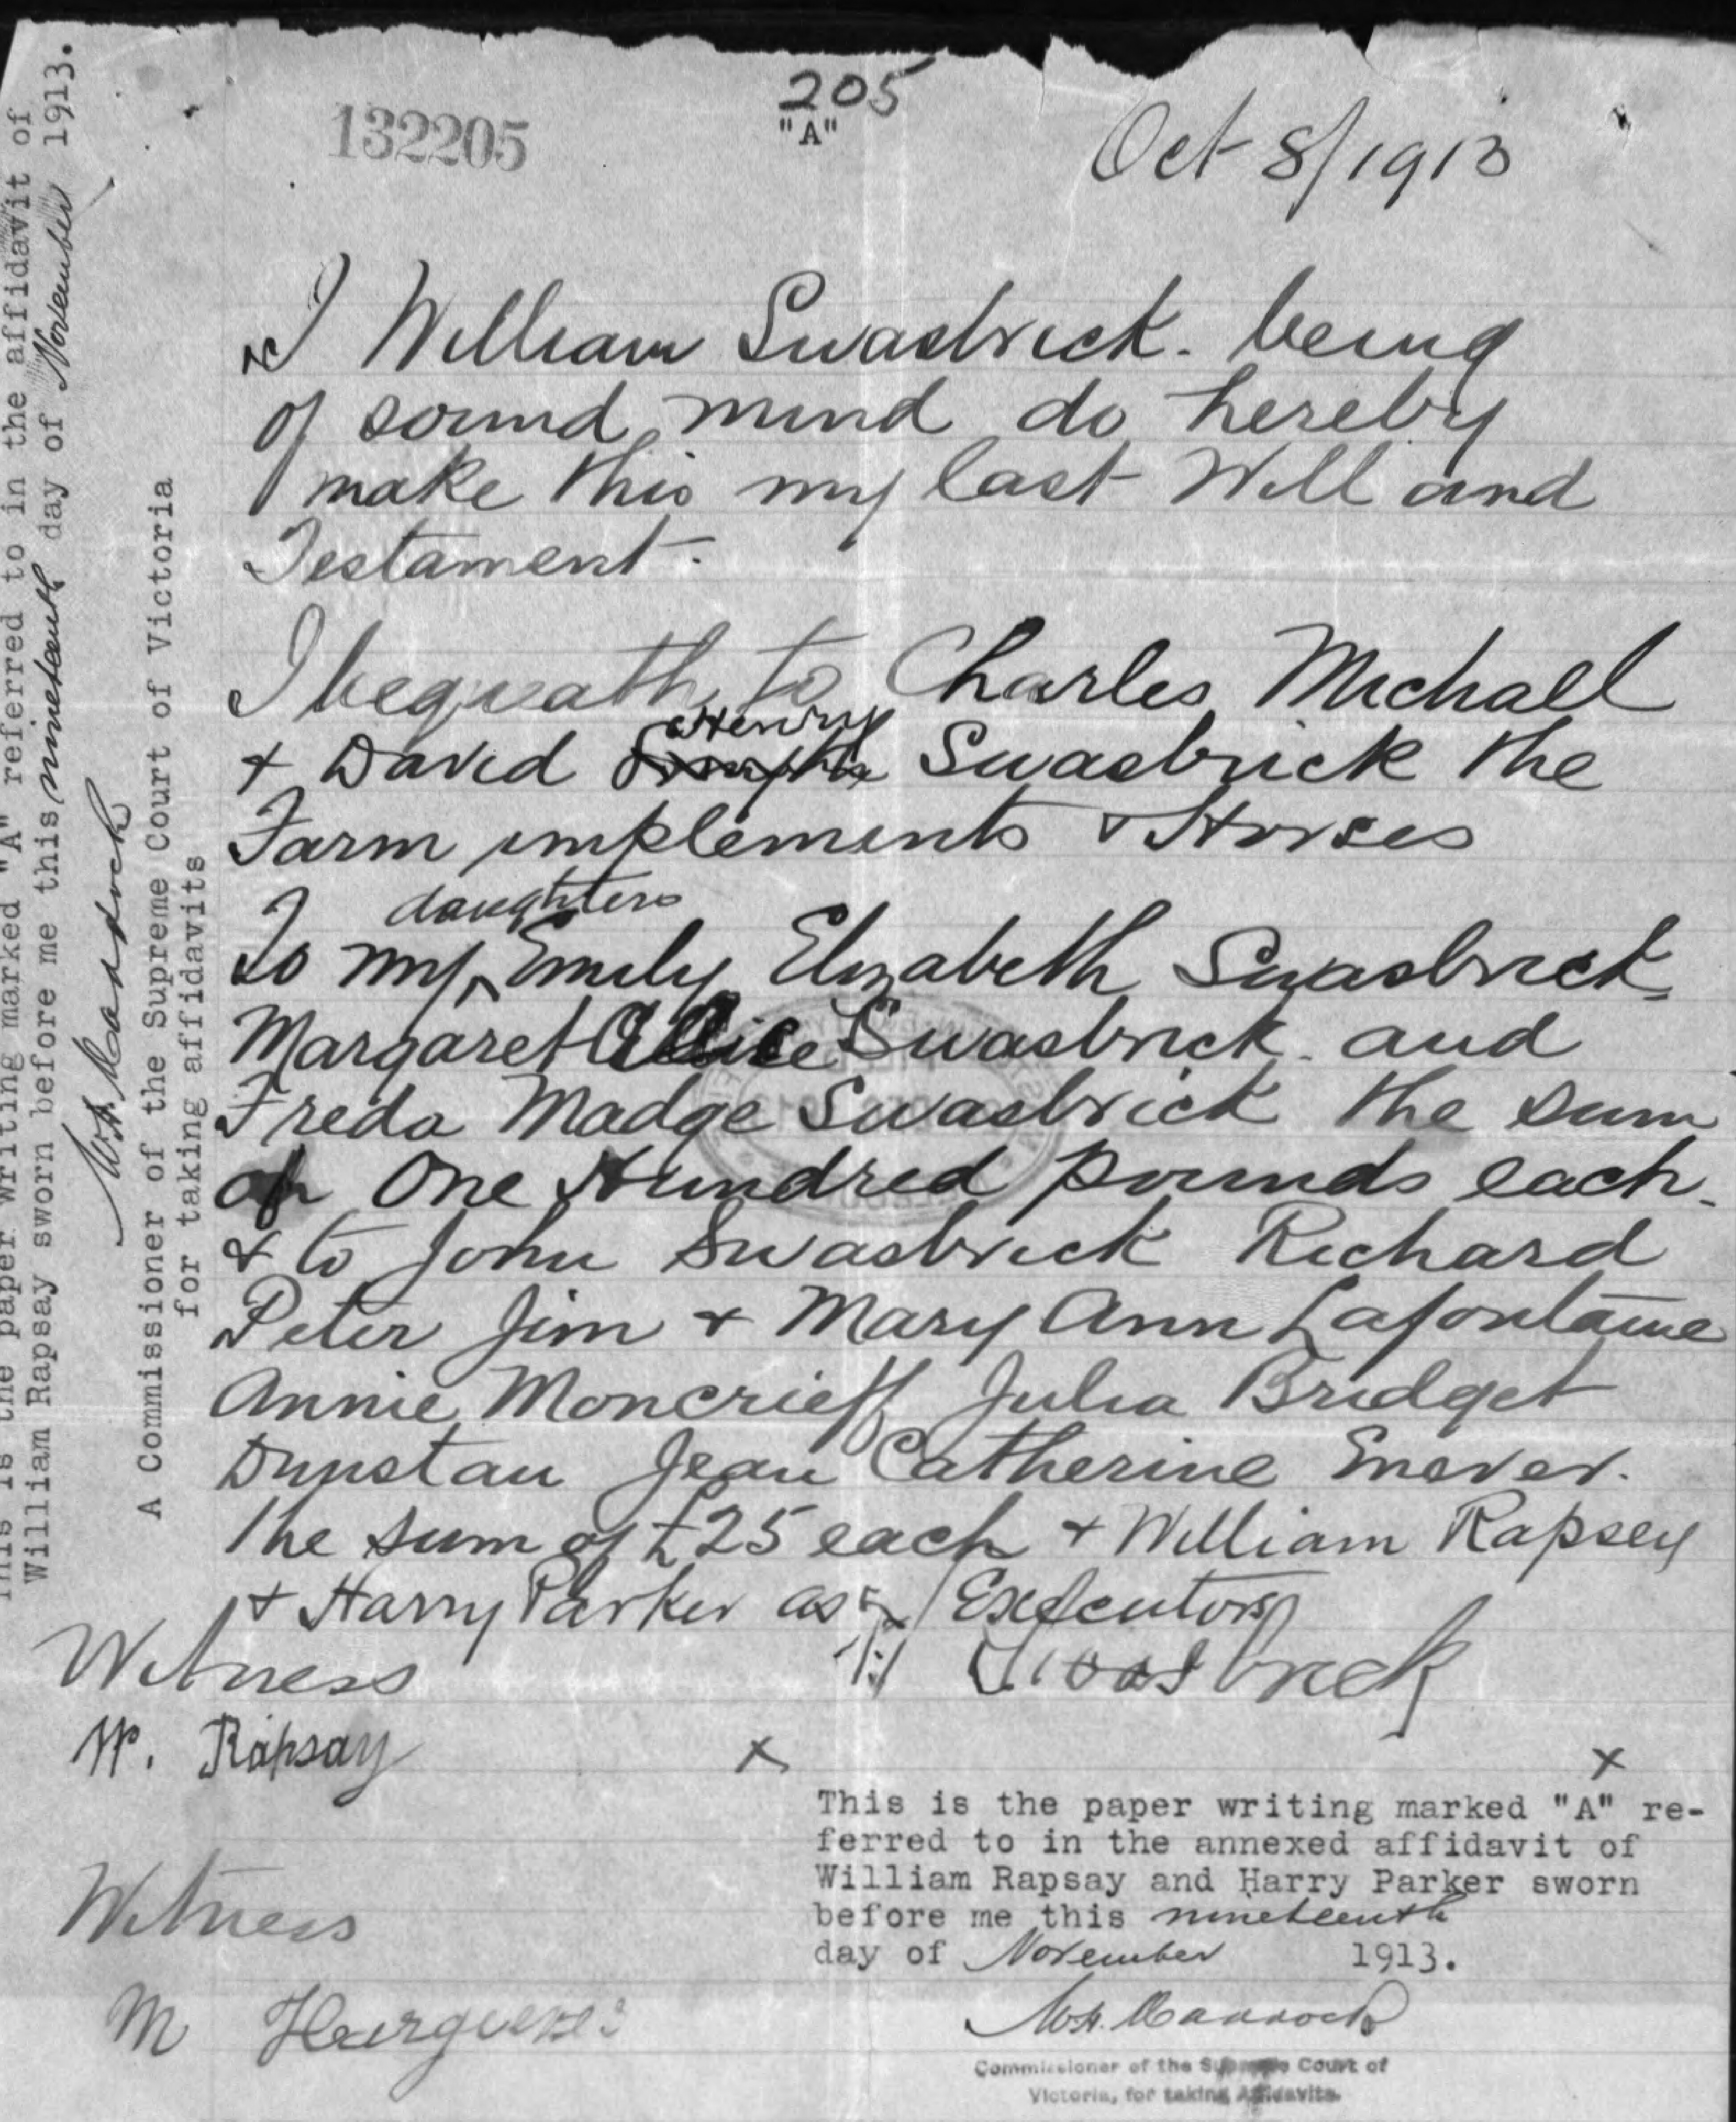 205
132205
"A"
Oct 8/1913
I William Swasbrick. being
of sound mind do hereby
make this my last Will and
Testament.
I beqvath to Charles Michall
Henry
+ David Swasbrick the
Farm implements + Horses
daughters
To my Emily Elizabeth Swasbrick
Margaret Allice Swasbrick. and
Freda Madge Swasbrick the sum
of One Hundred pounds each.
+ to John Swasbrick Richard
Peter Jim + Mary Ann Lafontaine
Annie Moncrieff Julia Bridget
Dunstan Jean Catherine Enever.
The sum of £25 each + William Rapsey
+ Harry Parker as Executors
Swasbrick
Witness
W. Rapsay
x x
Witness
M
This is the paper writing marked "A" re-
ferred to in the annexed affidavit of
William Rapsay and Harry Parker sworn
before me this nineteenth
day of November 1913.
Commissioner of the Supreme Court of
Victoria, for taking Affidavits.
This is the paper writing marked "A" referred to in the affidavit of
William Rapsay sworn before me this nineteenth day of November 1913.
A Commissioner of the Supreme Court of Victoria
for taking affidavits